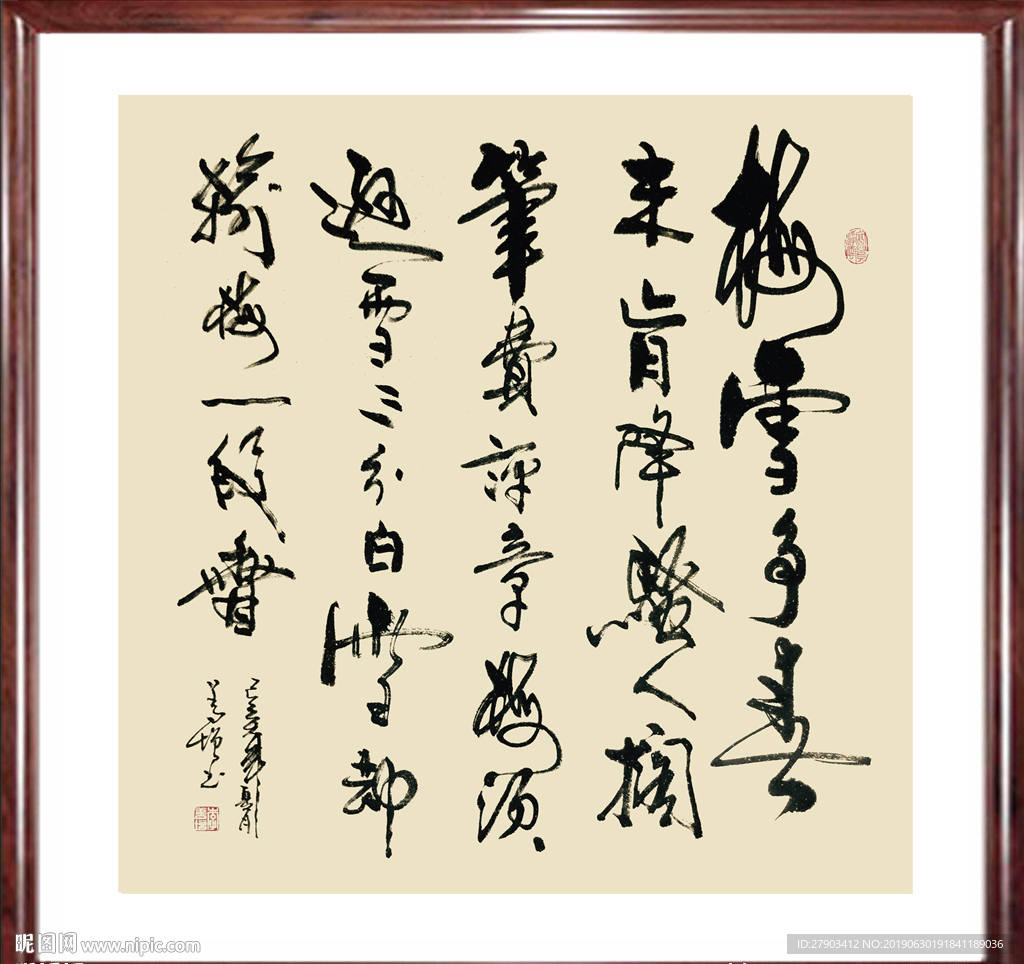 梅雪争春
未肯降騷人擱
筆費評章梅須
遜雪三分白雪却
輸梅一段香
己亥年夏月
增书
昵图网 www.nipic.com
ID:27903412 NO:20190630191841189036